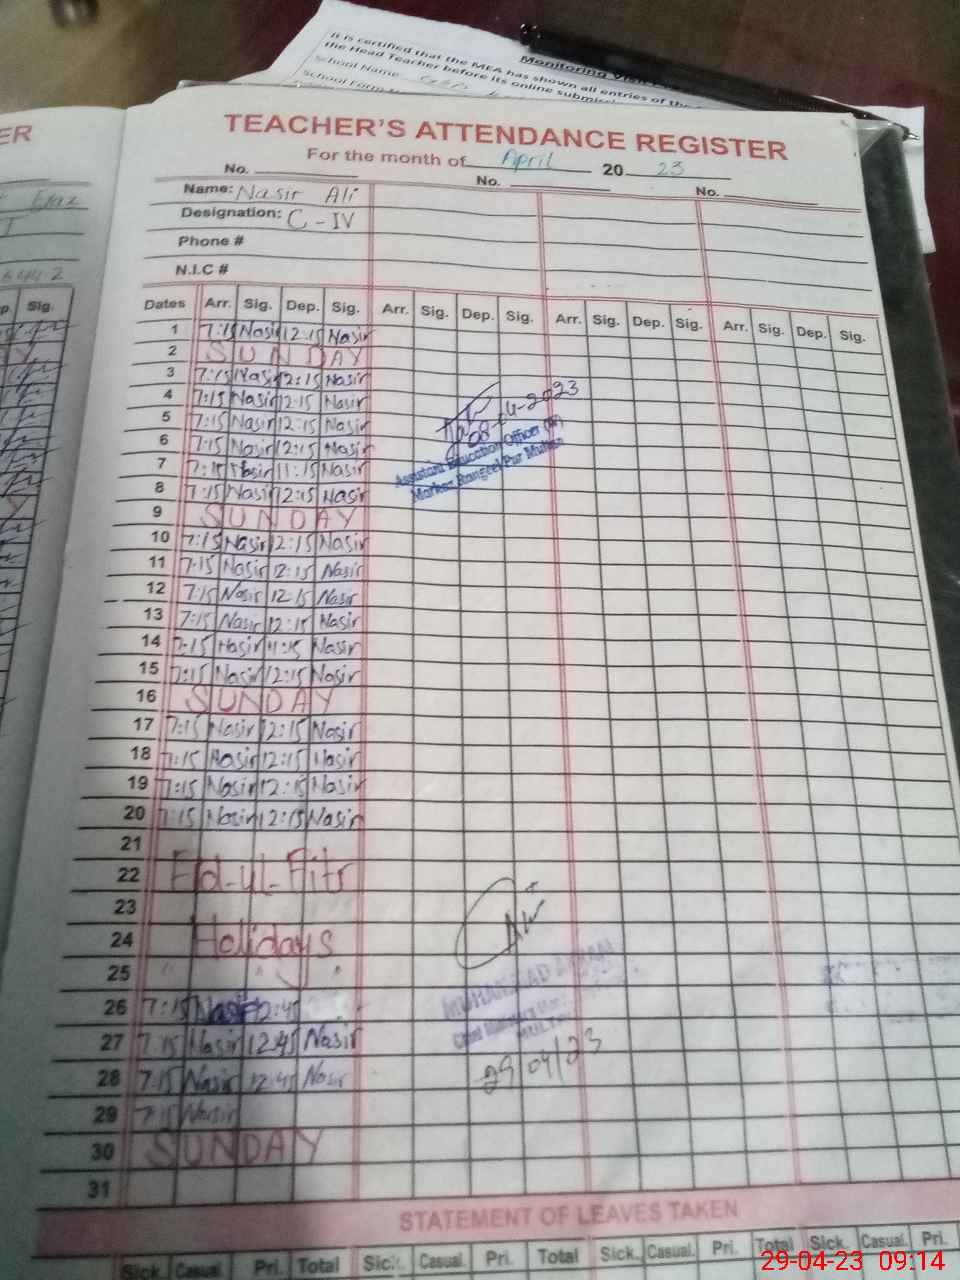 Monitoring
It is certified that the MEA has shown all entries of the
the Head Teacher before its online submiss
School Name
School Form
ER
TEACHER'S ATTENDANCE REGISTER
For the month of April 2023
No. No. No.
Name: Nasir Ali
Designation: C-IV
Phone #
N.I.C #
Sig.
Dates Arr. Sig. Dep. Sig. Arr. Sig. Dep. Sig. Arr. Sig. Dep. Sig. Arr. Sig. Dep. Sig.
1 7:15 Nasir 12:15 Nasir
2 SUNDAY
3 7:15 Nasir 12:15 Nasir
4 7:15 Nasir 12:15 Nasir
5 7:15 Nasir 12:15 Nasir
6 7:15 Nasir 12:15 Nasir
7 7:15 Nasir 11:15 Nasir
8 7:15 Nasir 12:15 Nasir
08-04-2023
Assistant Education Officer (M)
Markaz Rangeel Pur Multan
9 SUNDAY
10 7:15 Nasir 12:15 Nasir
11 7:15 Nasir 12:15 Nasir
12 7:15 Nasir 12:15 Nasir
13 7:15 Nasir 12:15 Nasir
14 7:15 Nasir 11:15 Nasir
15 7:15 Nasir 12:15 Nasir
16 SUNDAY
17 7:15 Nasir 12:15 Nasir
18 7:15 Nasir 12:15 Nasir
19 7:15 Nasir 12:15 Nasir
20 7:15 Nasir 12:15 Nasir
21
22 Eid-ul-Fitr
23
24 Holidays
25 " " "
26 7:15 Nasir 12:45
27 7:15 Nasir 12:45 Nasir
28 7:15 Nasir 12:45 Nasir
29 7:15 Nasir
30 SUNDAY
31
MUHAMMAD
MULTAN
29/04/23
STATEMENT OF LEAVES TAKEN
Sick. Casual Pri. Total Sick. Casual. Pri. Total Sick. Casual. Pri. Total Sick. Casual. Pri.
29-04-23 09:14